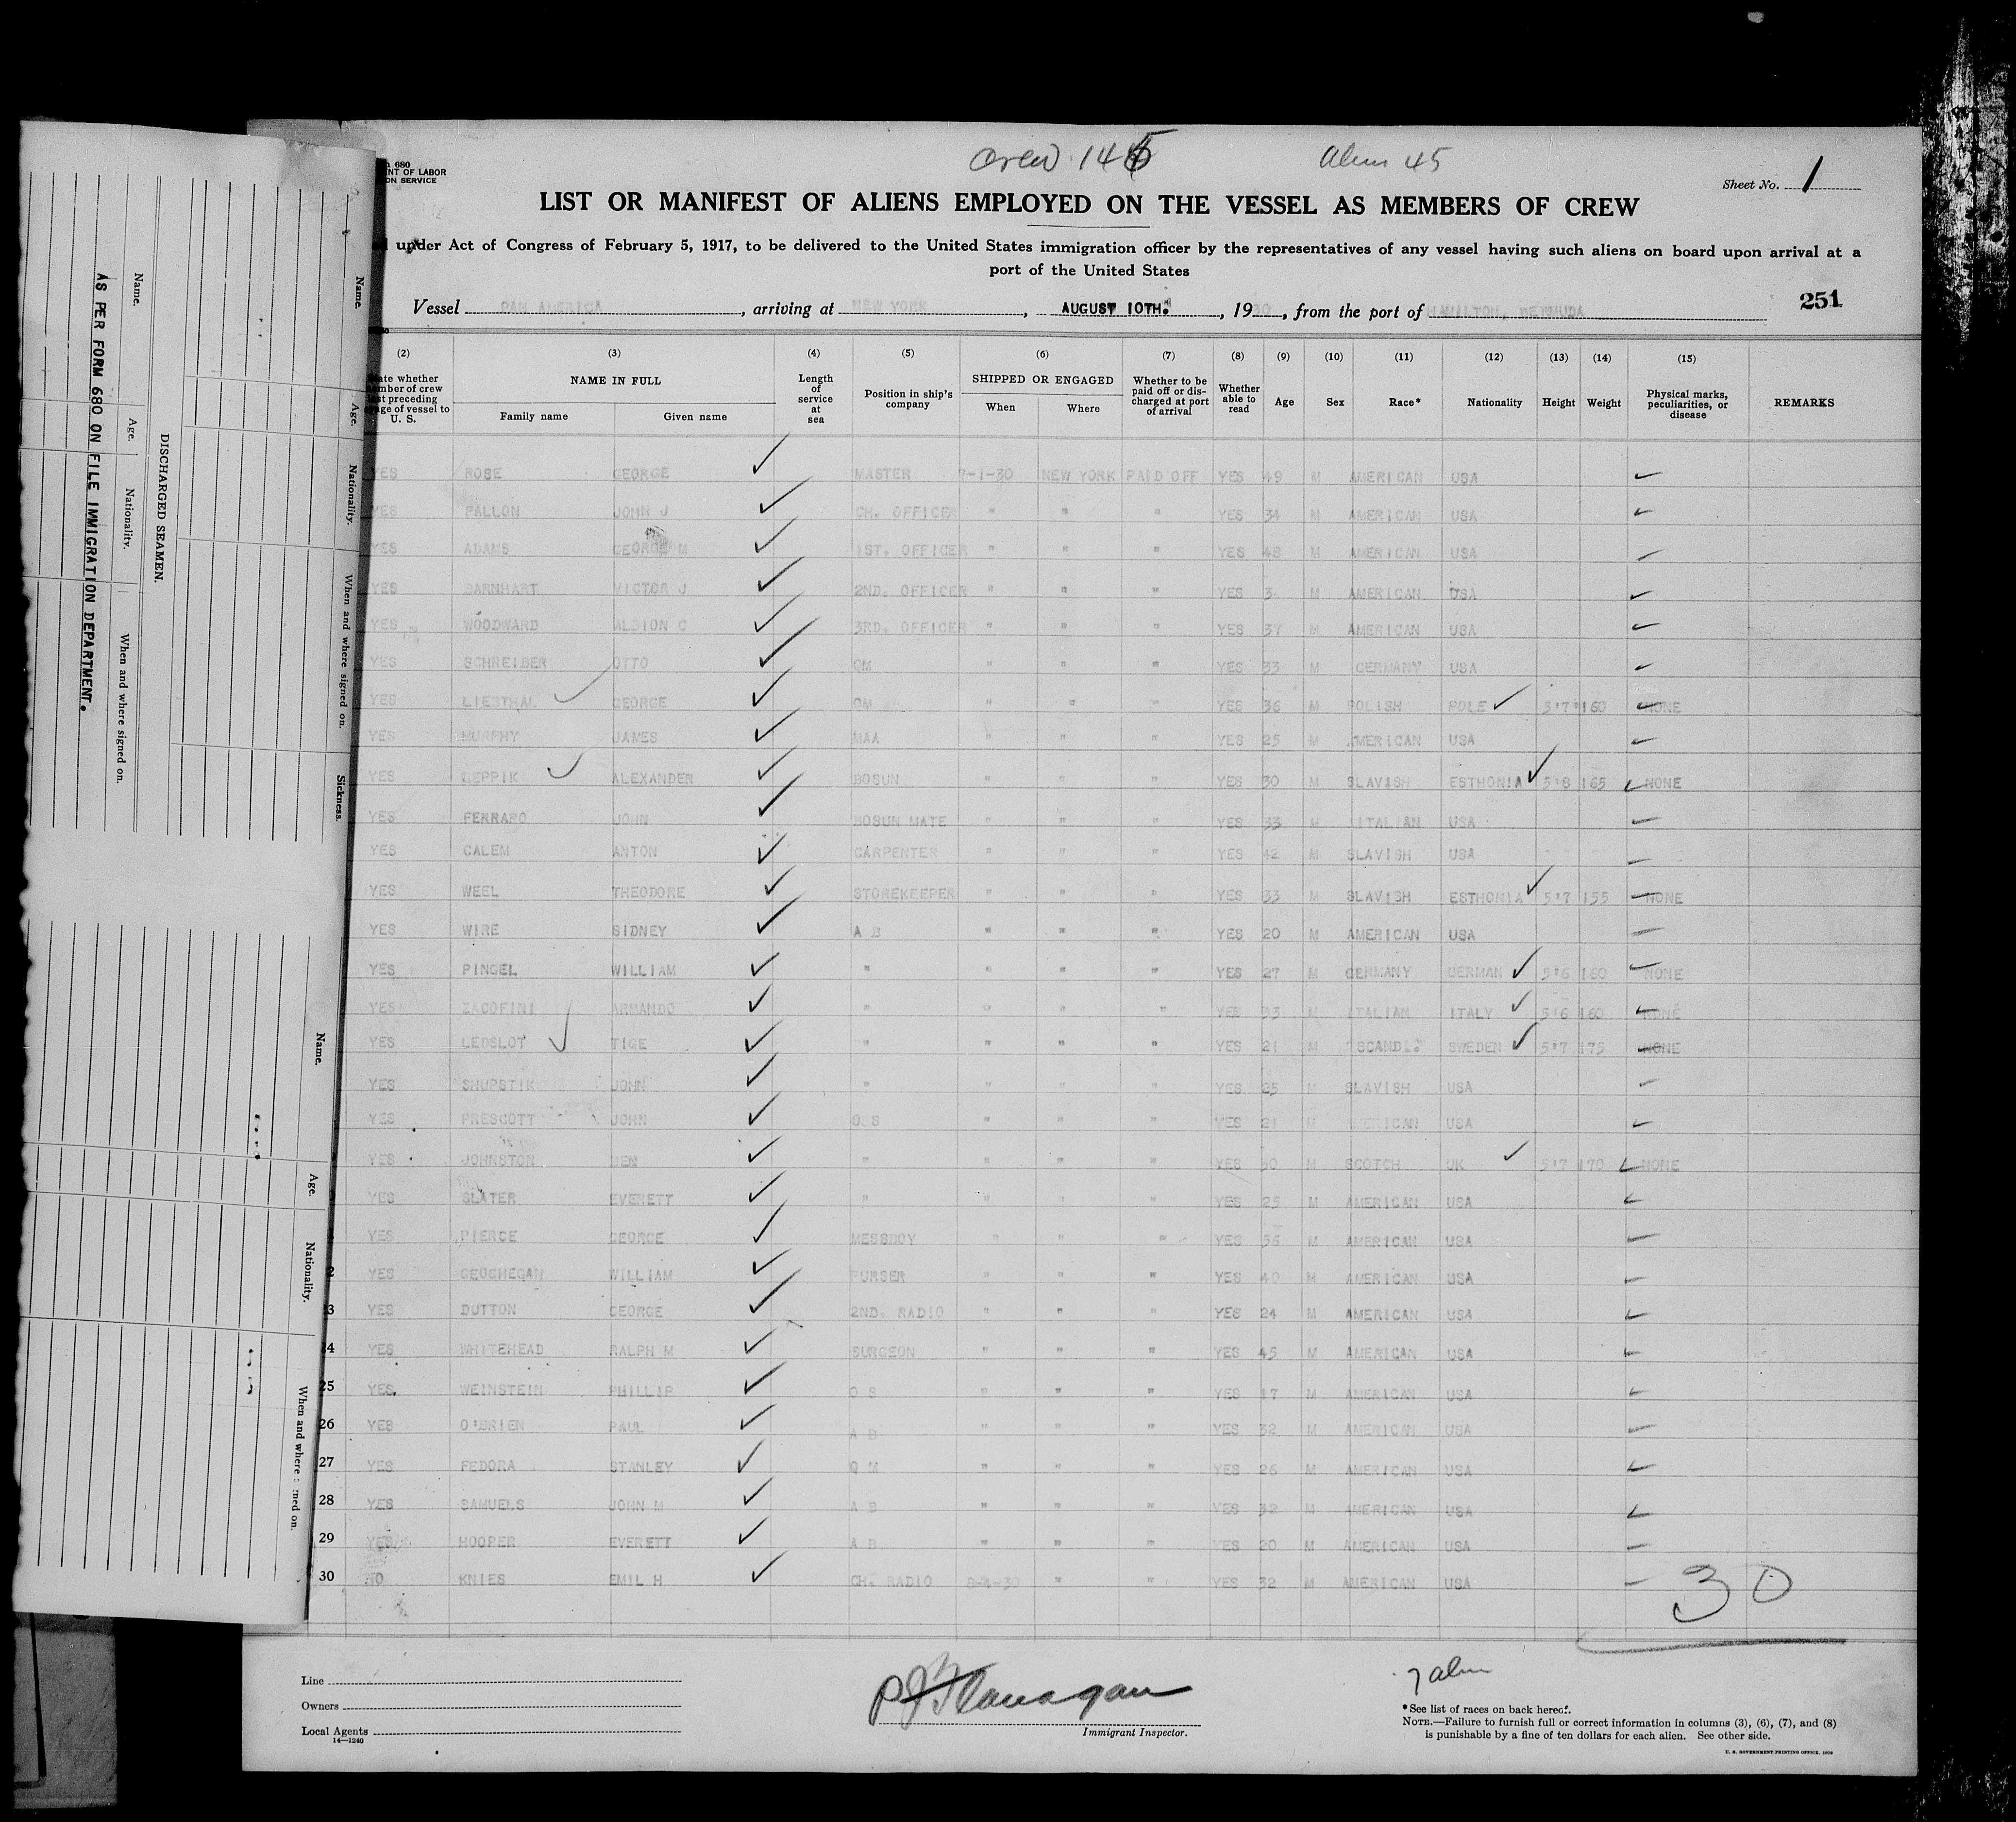 680
NT OF LABOR
ON SERVICE
Crew 145
Alien 45
Sheet No. 1
LIST OR MANIFEST OF ALIENS EMPLOYED ON THE VESSEL AS MEMBERS OF CREW
under Act of Congress of February 5, 1917, to be delivered to the United States immigration officer by the representatives of any vessel having such aliens on board upon arrival at a
port of the United States
Vessel PAN AMERICA, arriving at NEW YORK, AUGUST 10TH., 1930, from the port of HAMILTON, BERMUDA
251
(2) (3) (4) (5) (6) (7) (8) (9) (10) (11) (12) (13) (14) (15)
ate whether mber of crew st preceding age of vessel to U. S. NAME IN FULL Family name Given name Length of service at sea Position in ship's company SHIPPED OR ENGAGED When Where Whether to be paid off or discharged at port of arrival Whether able to read Age Sex Race* Nationality Height Weight Physical marks, peculiarities, or disease REMARKS
YES ROSE GEORGE MASTER 7-1-30 NEW YORK PAID OFF YES 49 M AMERICAN USA
YES FALLON JOHN J CH. OFFICER " " " YES 34 M AMERICAN USA
YES ADAMS GEORGE M 1ST. OFFICER " " " YES 48 M AMERICAN USA
YES BARNHART VICTOR J 2ND. OFFICER " " " YES M AMERICAN USA
YES WOODWARD ALBION C 3RD. OFFICER " " " YES 37 M AMERICAN USA
YES SCHREIBER OTTO QM " " " YES 33 M GERMANY USA
YES LIESTHAL GEORGE QM " " " YES 36 M POLISH POLE 5'7" 160 NONE
YES MURPHY JAMES MAA " " " YES 25 M AMERICAN USA
YES LEPPIK ALEXANDER BOSUN " " " YES 30 M SLAVISH ESTHONIA 5'8 165 NONE
YES FERRARO JOHN BOSUN MATE " " " YES 33 M ITALIAN USA
YES CALEM ANTON CARPENTER " " " YES 42 M SLAVISH USA
YES WEEL THEODORE STOREKEEPER " " " YES 33 M SLAVISH ESTHONIA 5'7 155 NONE
YES WIRE SIDNEY A B " " " YES 20 M AMERICAN USA
YES PINGEL WILLIAM " " " " YES 27 M GERMANY GERMAN 5'6 180 NONE
YES ZACOFINI ARMANDO " " " " YES 33 M ITALIAN ITALY 5'6 160 NONE
YES LEDSLOT TIGE " " " " YES 21 M SCANDI. SWEDEN 5'7 175 NONE
YES SHUPSTIK JOHN " " " " YES 25 M SLAVISH USA
YES PRESCOTT JOHN O S " " " YES 21 M AMERICAN USA
YES JOHNSTON BEN " " " " YES 30 M SCOTCH UK 5'7 170 NONE
YES SLATER EVERETT " " " " YES 25 M AMERICAN USA
YES PIERCE GEORGE MESSBOY " " " YES 56 M AMERICAN USA
YES GEOGHEGAN WILLIAM PURSER " " " YES 40 M AMERICAN USA
3 YES DUTTON GEORGE 2ND. RADIO " " " YES 24 M AMERICAN USA
24 YES WHITEHEAD RALPH M SURGEON " " " YES 45 M AMERICAN USA
25 YES WEINSTEIN PHILLIP O S " " " YES 17 M AMERICAN USA
26 YES O'BRIEN PAUL A B " " " YES 32 M AMERICAN USA
27 YES FEDORA STANLEY Q M " " " YES 26 M AMERICAN USA
28 YES SAMUELS JOHN M A B " " " YES 32 M AMERICAN USA
29 YES HOOPER EVERETT A B " " " YES 20 M AMERICAN USA
30 NO KNIES EMIL H CH. RADIO 8-4-30 " " YES 32 M AMERICAN USA
30
Line
Owners
Local Agents
14—1240
P J Flanagan
Immigrant Inspector.
7 alien
*See list of races on back hereof.
NOTE.—Failure to furnish full or correct information in columns (3), (6), (7), and (8)
is punishable by a fine of ten dollars for each alien. See other side.
U. S. GOVERNMENT PRINTING OFFICE
AS PER FORM 680 ON FILE IMMIGRATION DEPARTMENT.
DISCHARGED SEAMEN.
Name. Age. Nationality. When and where signed on.
Name. Age. Nationality. When and where signed on. Sickness.
Name. Age. Nationality. When and where signed on.